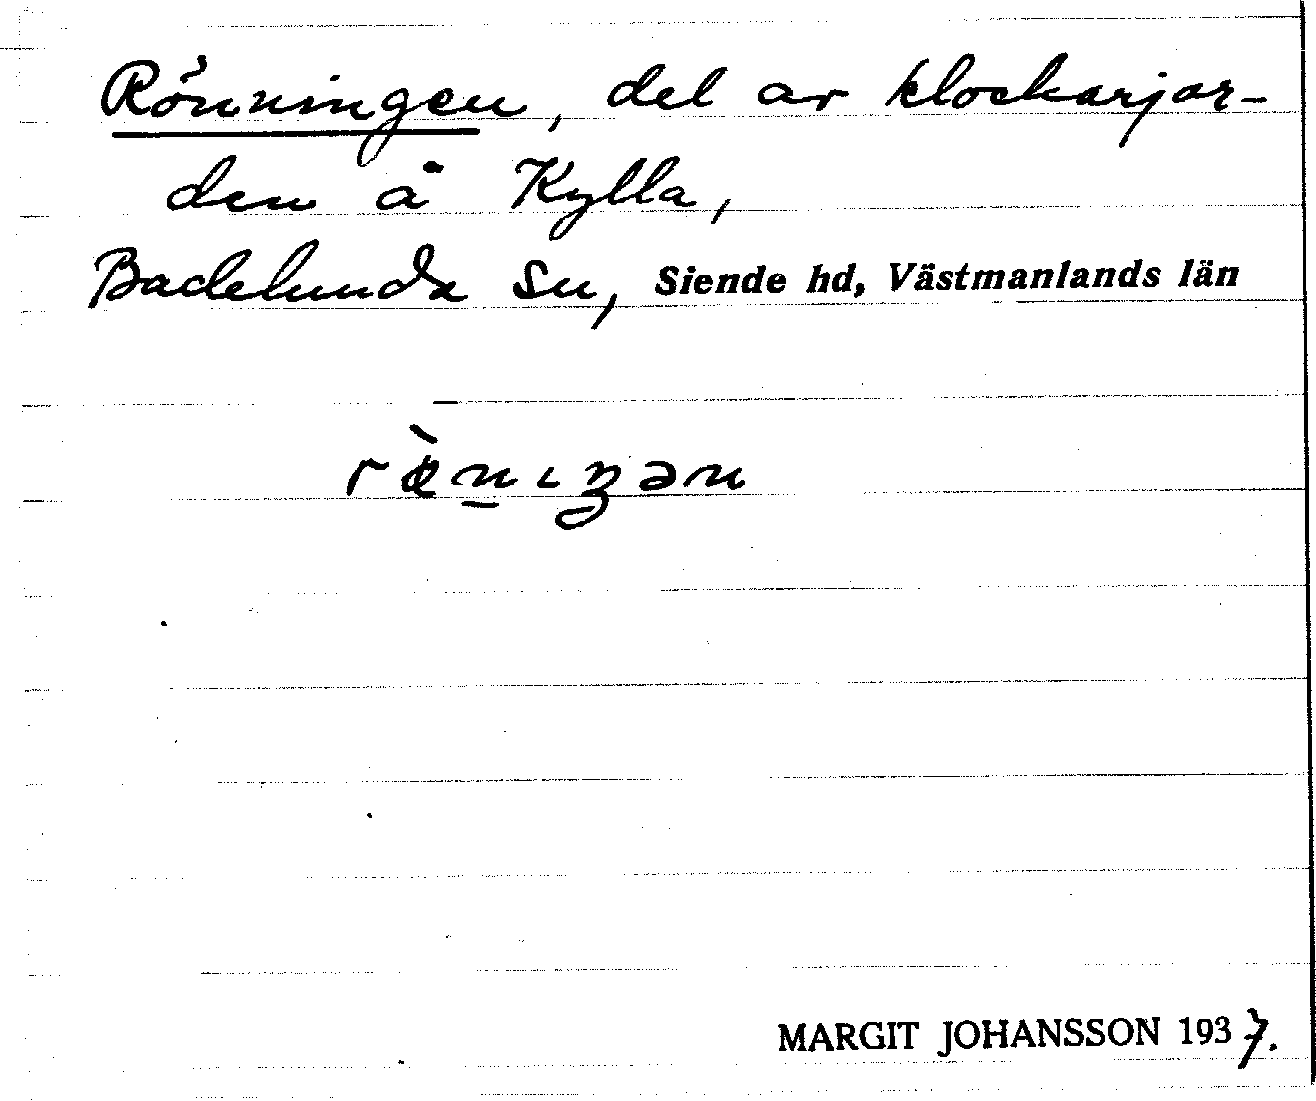 Rönningen, del av klockarjor-
den å Kylla,
Badelunda Sn, Siende hd, Västmanlands län
MARGIT JOHANSSON 1937.